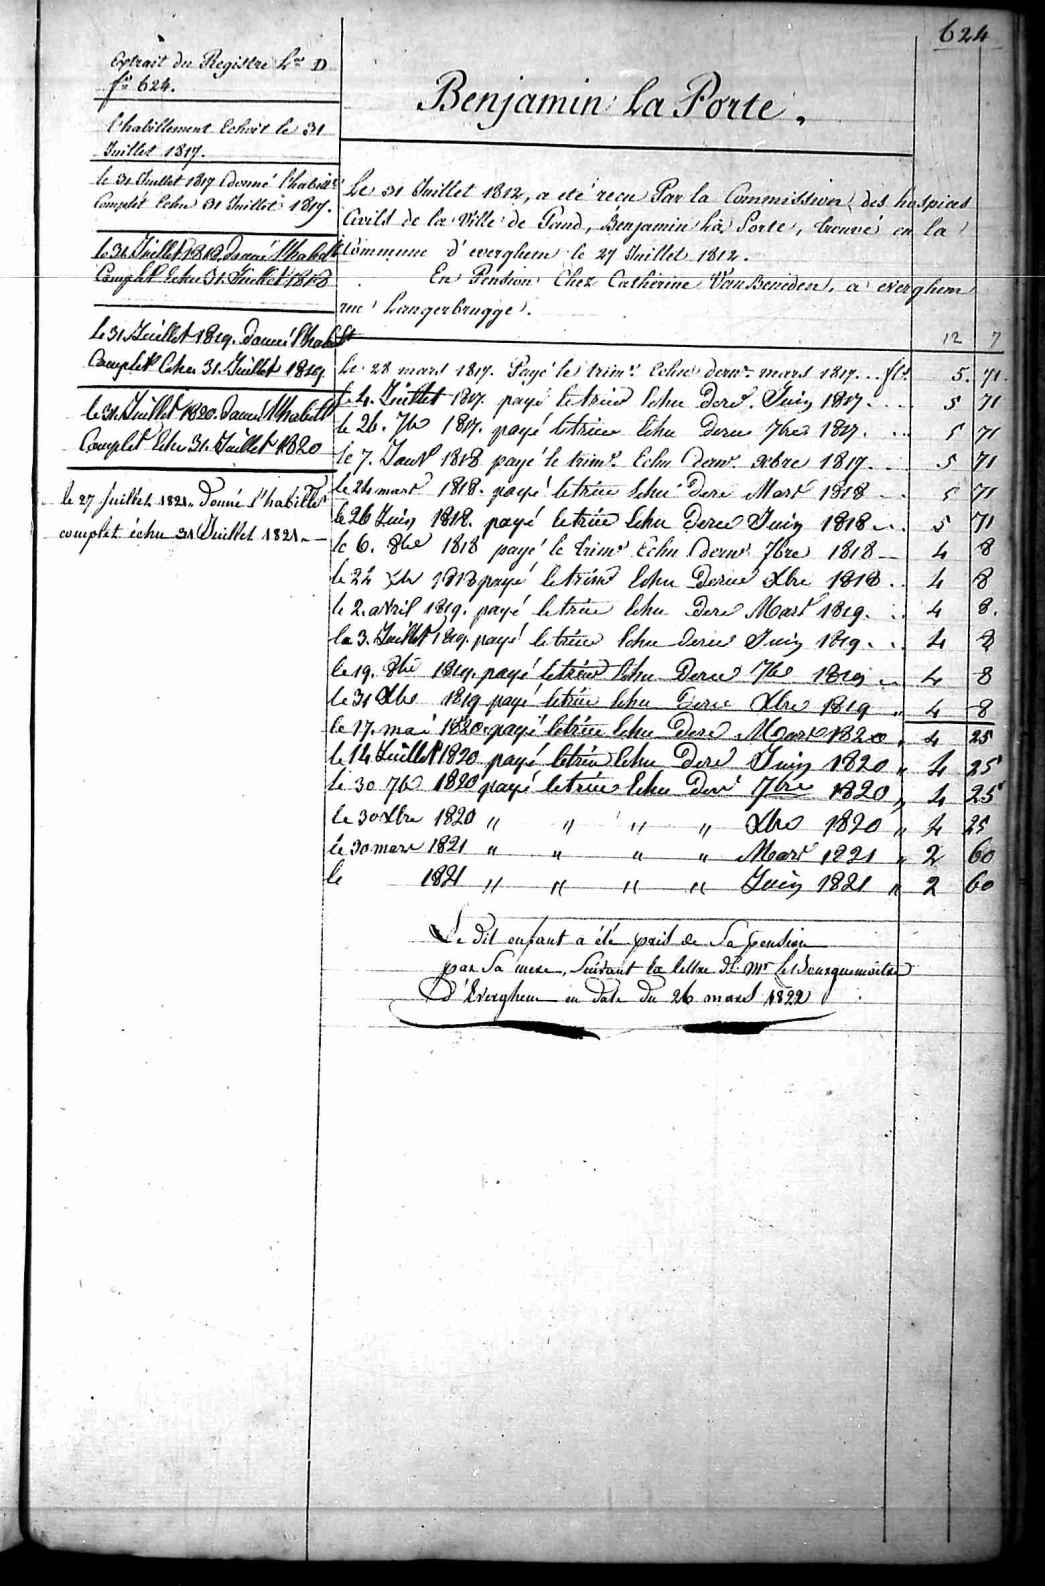 624
Extrait du Registre Lre D
fo 624.
l'habillement Echoit le 31
Juillet 1817.
le 31 Juillet 1817 donné l'habillt
Complet Echu 31 Juillet 1817.
le 31 Juillet 1818 donné l'habillt
Complet Echu 31 Juillet 1818
le 31 Juillet 1819. donné l'habillt
Complet Echu 31. Juillet 1819
le 31. Juillet 1820. donné l'habillt
Complet Echu 31. Juillet 1820
le 27 Juillet 1821. Donné l'habillet
complet échu 31 Juillet 1821
Benjamin La Porte.
Le 31 Juillet 1812, a eté recu Par la Commission des hospices
Civils de la Ville de Gand, Benjamin La Porte, trouvé en la
Commune d'everghem le 27 Juillet 1812.
En Pension Chez Catherine Van Beneden, a everghem
rue Langerbrugge.
12 7
Le 28 mars 1817. Payé le trimr. Echu dernr. mars 1817... fls. 5. 71.
le 4. Juillet 1817. payé le trim Echu Derr. Juin 1817. ... 5 71
le 26. 7b 1817. payé le trim Echu Dern 7bre 1817. ... 5 71
le 7. Janvr 1818 payé le trimr. Echu dernr. xbre 1817. .. 5 71
le 24 mars 1818. payé le trim Echu Dern Mars 1818 .. 5 71
le 26 Juin 1818. payé le trim Echu Dern Juin 1818 ... 5 71
le 6. 8bre 1818 payé le trimr Echu dernr 7bre 1818 — 4 8
le 24 xbr 1818 payé le trim Echu Dernr Xbre 1818 .. 4 8
le 2. avril 1819. payé le trim Echu Dern Mars 1819. .. 4 8.
le 3. Juillet 1819. payé le trim Echu Dern Juin 1819. .. 4 8
le 19. 8bre 1819. payé le trim Echu Dern 7br 1819 .. 4 8
le 31 Xbre 1819 payé le trim Echu Dern Xbre 1819 " 4 8
le 17. mai 1820. payé le trim Echu Dern Mars 1820 " 4 25
le 14 Juillet 1820 payé le trim Echu Dern Juin 1820 " 4 25
le 30 7b 1820 payé le trim Echu Dern 7bre 1820 " 4 25
le 30 Xbre 1820 " " " " Xbre 1820 " 4 25
le 30 mars 1821 " " " " Mars 1821 " 2 60
le 1821 " " " " Juin 1821 " 2 60
Le dit enfant a été pris de Sa pension
par Sa mere, Suivant la lettre de Mr le Bourguemaître
D'Everghem en date du 26 mars 1822